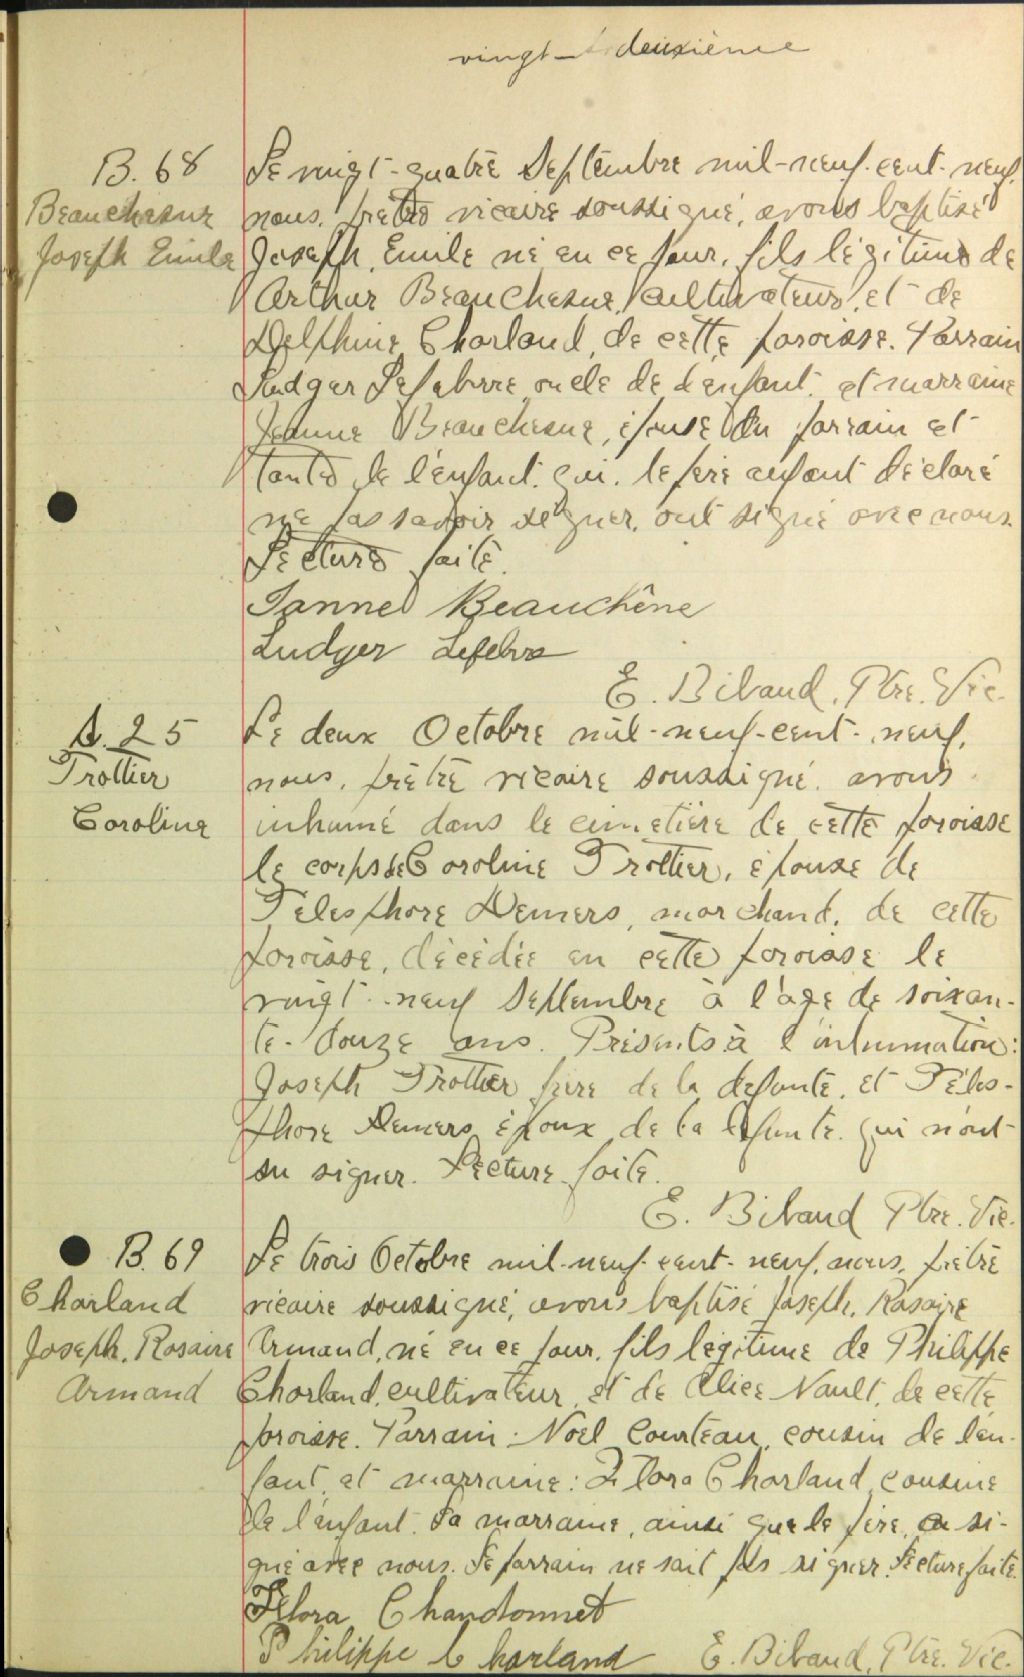 vingt-deuxième
B. 68
Beauchesne
Joseph Emile
Le vingt-quatre Septembre mil-neuf-cent-neuf,
nous, prêtre vicaire soussigné, avons baptisé
Joseph, Emile né en ce jour, fils légitime de
Arthur Beauchesne, cultivateur, et de
Delphine Charland, de cette paroisse. Parrain
Ludger Lefebvre, oncle de l'enfant, et marraine
Jeanne Beauchesne, épouse du parrain et
tante de l'enfant, qui, le père ayant déclaré
ne pas savoir signer, ont signé avec nous.
Lecture faite.
Janne Beauchêne
Ludger Lefebvre
E. Bibaud, Ptre. Vic.
S. 25
Trottier
Caroline
Le deux Octobre mil-neuf-cent-neuf,
nous, prêtre vicaire soussigné, avons
inhumé dans le cimetière de cette paroisse
le corps de Caroline Trottier, épouse de
Télesphore Demers, marchand, de cette
paroisse, décédée en cette paroisse le
vingt-neuf Septembre à l'âge de soixan-
te-douze ans. Présents à l'inhumation:
Joseph Trottier frère de la défunte, et Téles-
phore Demers époux de la défunte qui n'ont
su signer. Lecture faite.
E. Bibaud Ptre. Vic.
B. 69
Charland
Joseph, Rosaire
Armand
Le trois Octobre mil-neuf-cent-neuf, nous, prêtre
vicaire soussigné, avons baptisé Joseph, Rosaire
Armand, né en ce jour, fils légitime de Philippe
Charland, cultivateur, et de Alice Nault, de cette
paroisse. Parrain: Noël Courteau, cousin de l'en-
fant, et marraine: Flora Charland, cousine
de l'enfant. La marraine, ainsi que le père, a si-
gné avec nous. Le parrain ne sait pas signer. Lecture faite.
Flora Chandonnet
Philippe Charland E. Bibaud, Ptre. Vic.